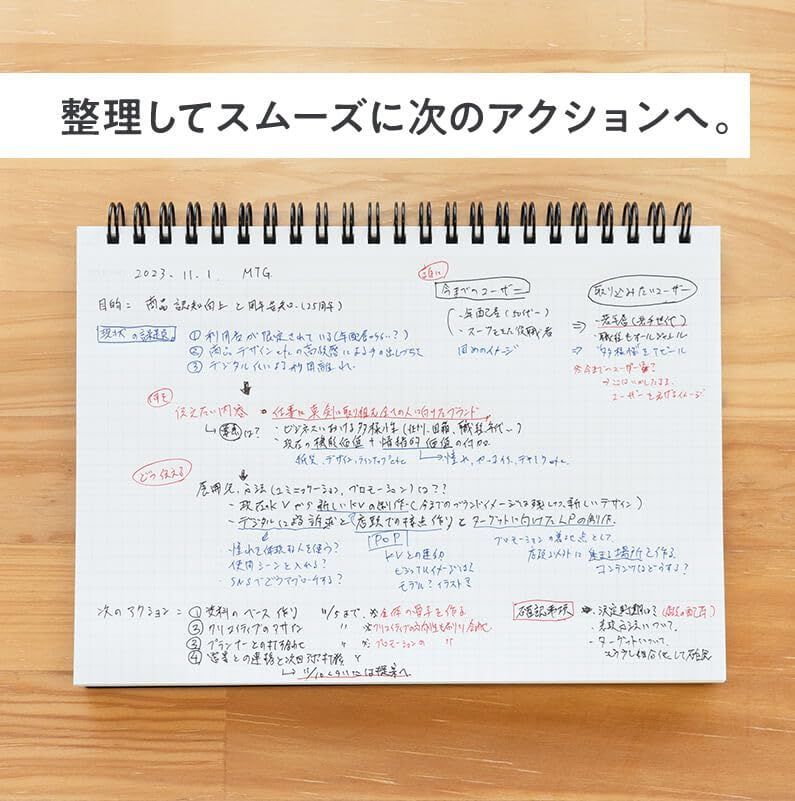 整理してスムーズに次のアクションへ。
2023.11.1. MTG
目的 = 商品認知向上と周年告知(25周年)
現状の課題
① 利用者が限定されている(年配層
② 商品デザインetcの高級感による手の出しづらさ
③ デジタル化による
誰に
今までのユーザー
・年配層(50代〜)
・スーツをきた役職者
固めのイメージ
取り込みたいユーザー
⇒ ・若年層(若手世代)
・職種もオールジャンル
⇒ "多様性"をアピール
※今までのユーザー
ユーザーを広げるイメージ
何を
伝えたい内容 ・仕事に真剣に取り組む全ての人に向けたブランド
は? ・ビジネスにおける多様性(性別、国籍、職種、年代〜)
・現在の機能価値+情緒的価値の付加
デザイン、ラインナップetc
どう伝える
展開先、方法(コミュニケーション、プロモーション)は??
・現在のKVから新しいKVの制作・(今までのブランドイメージは残しつつ、新しいデザイン)
・デジタルによる訴求と店頭での接点作りとターゲットに向けたLPの制作.
・憧れを体現する人を使う?
使用シーンを入れる?
・SNSでどうアプローチする?
POP
KVとの連動
モデル?イラスト?
プロモーションの集約地点として、
店頭以外に集まる場所を作る
コンテンツはどうする?
次のアクション = ① 資料のベース作り 11/5まで. ※全体の骨子を作る
② クリエイティブのアサイン 〃 ※クリエイティブの方向性も
③ プランナーとの打合せ 〃 ※プロモーションの 〃
④ 営業との連携と次回 打診 〃
→ 11/10くらいには提案へ.
確認事項
・ 決定時期は?
・ 方法について.
・ターゲットについて.
して確認